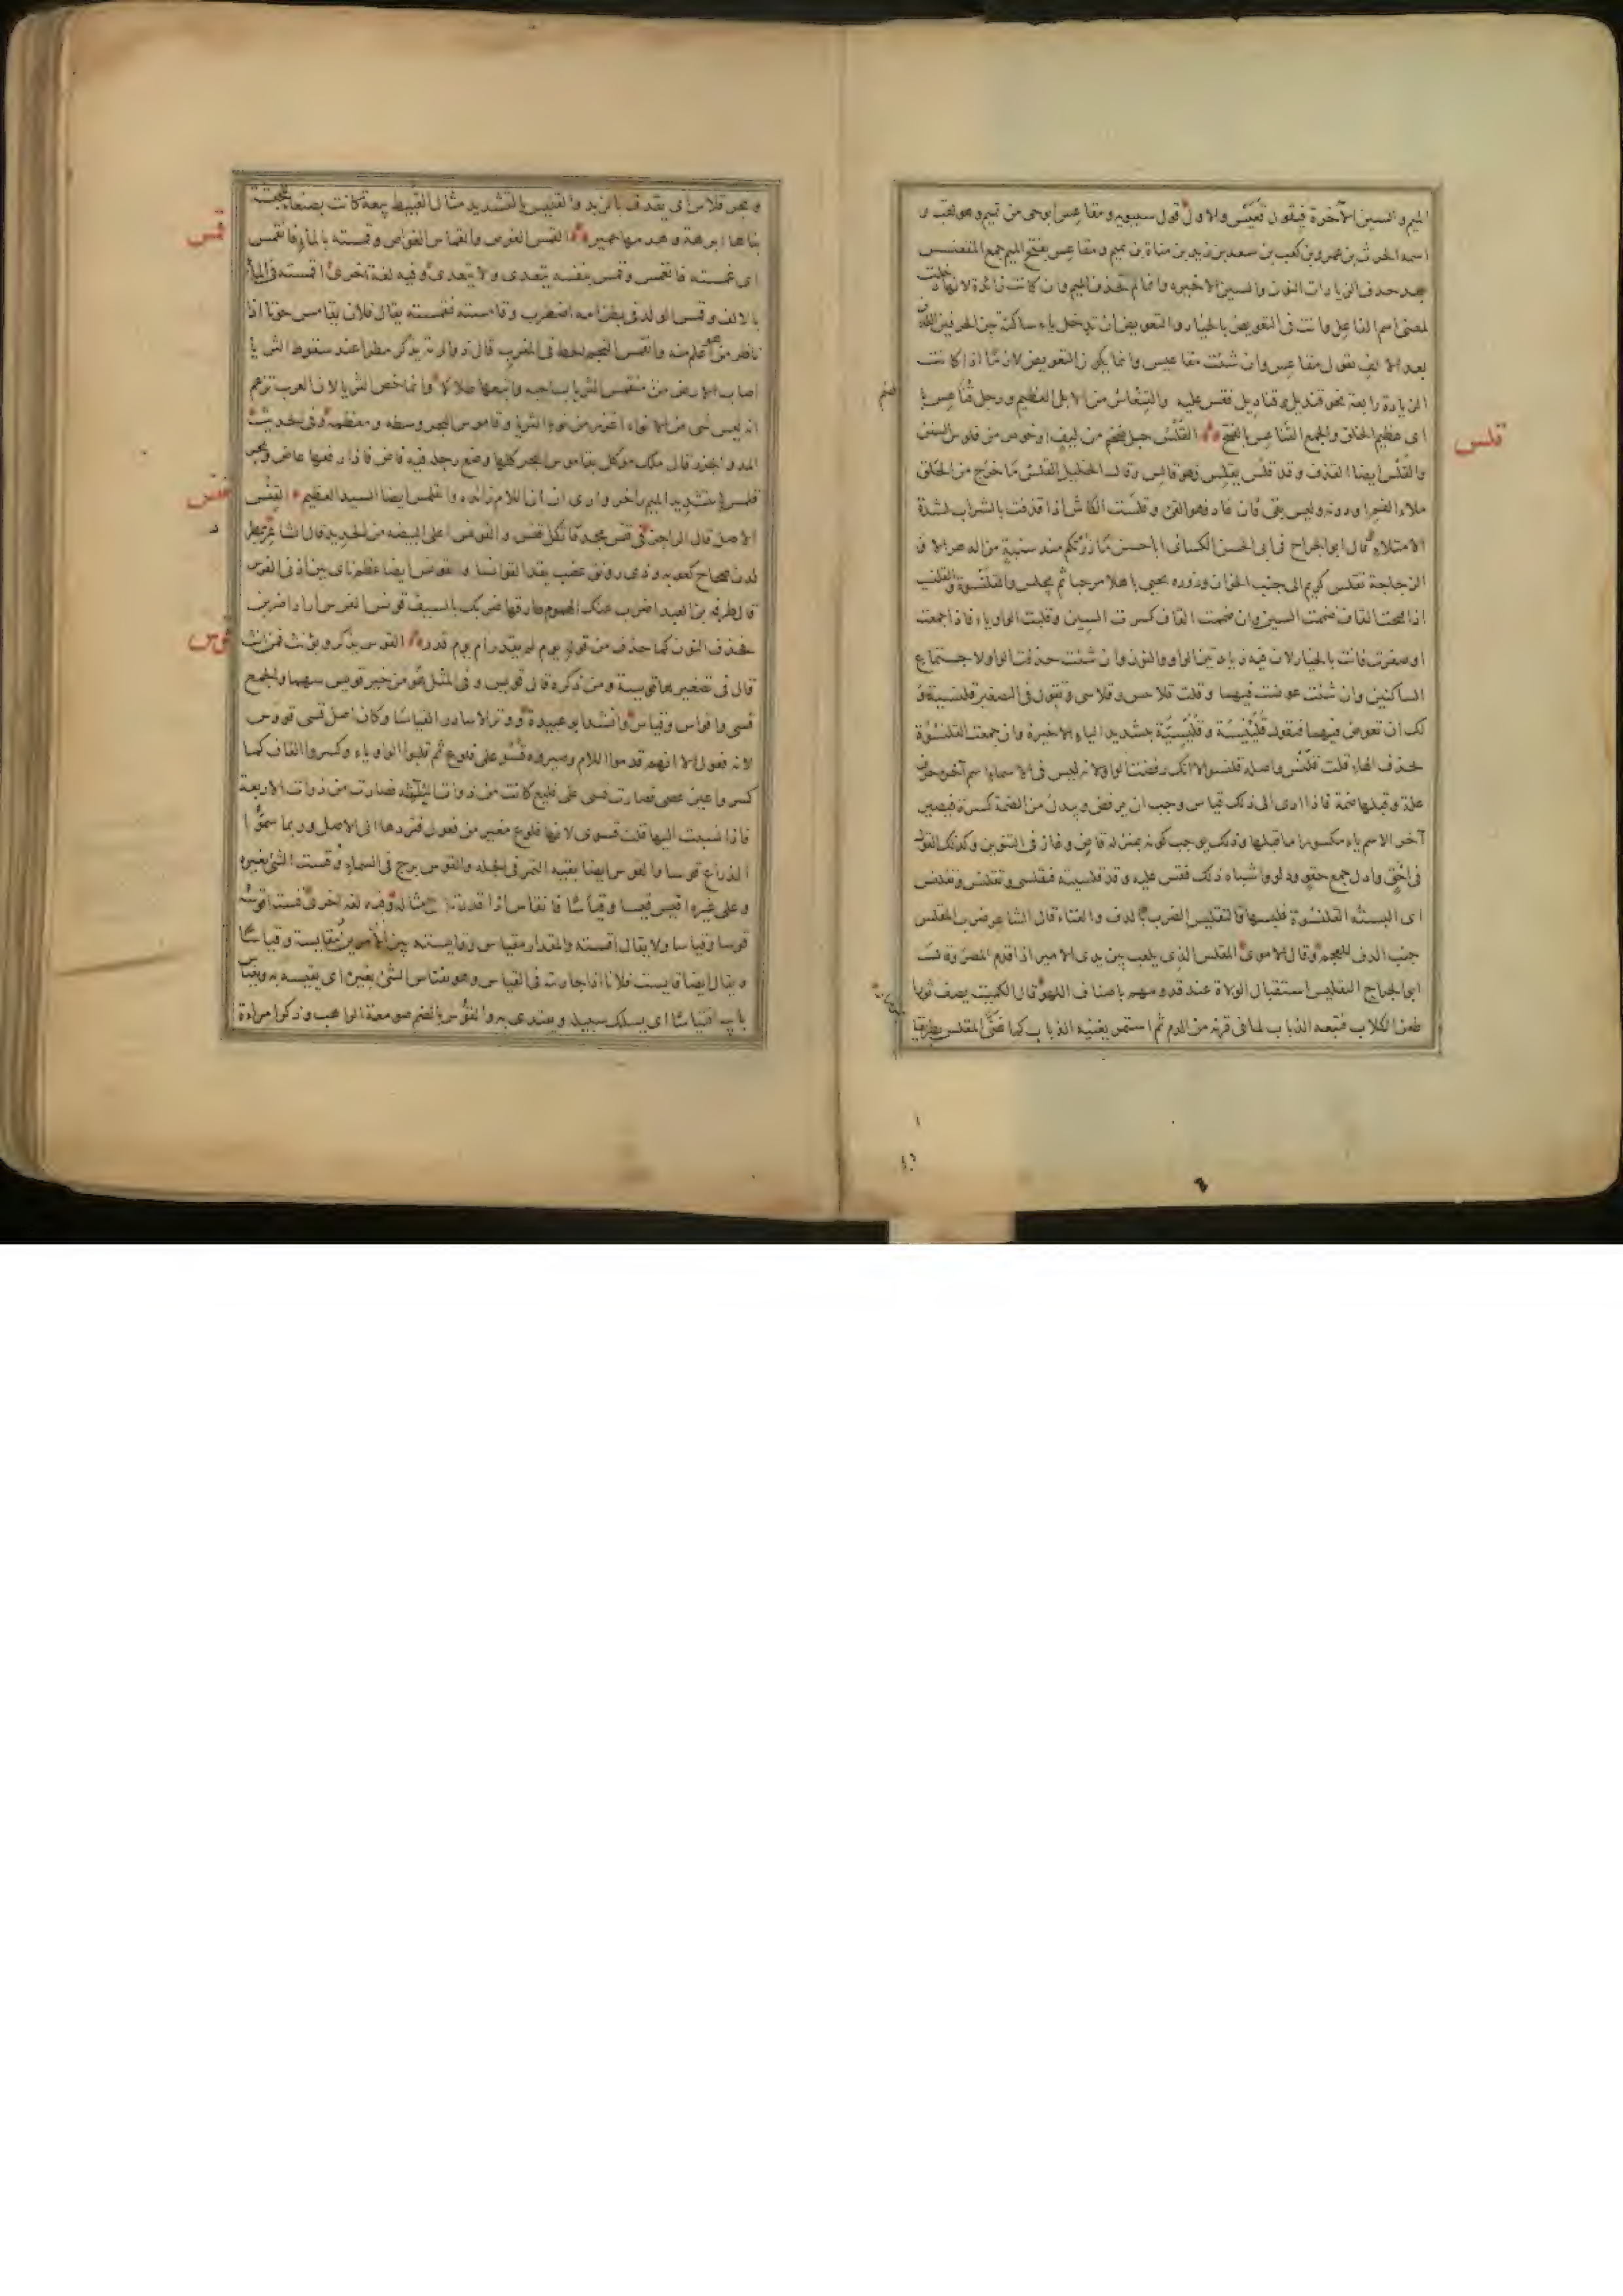 الميم والسين الآخرة فيقول قعيس والاول قول سيبويه ومقاعس ابو حي من تميم وهو لقب و
اسمه الحرث بن عمرو بن كعب بن سعد بن زيد بن مناة بن تميم ومقاعس بفتح الميم جمع المقعنسس
بعد حذف الزيادات النون والسين الاخيرة وانما لم تحذف الميم وان كانت زائدة لانها دخلت
لمعنى اسم الفاعل وانت في التعويض بالخيار والتعويض ان تدخل ياء ساكنة بين الحرفين اللذين
بعد الالف تقول مقاعس وان شئت مقاعيس وانما يكون التعويض لازما اذا كانت
الزيادة رابعة نحو قنديل وقناديل فقس عليه
اى عظيم الخلق والجمع القناعس بالفتح القلس حبل ضخم من ليف او خوص من قلوس السفن
قلس
والقلس ايضا القذف وقد قلس يقلس فهو قالس وقال الخليل القلس ما خرج من الحلق
ملء الفم او دونه وليس بقئ فان عاد فهو القئ وقلست الكاس اذا قذفت بالشراب لشدة
الامتلاء قال ابو الجراح في ابى الحسن الكسائى ابا حسن ما زرتكم منذ سنبة من الدهر الا و
الزجاجة تقلس كريم الى جنب الخوان وزوره يحيى باهلا مرحبا ثم يجلس والقلنسوة والقلنسية
اذا فتحت القاف ضممت السين وان ضممت القاف كسرت السين وقلبت الواو ياء فاذا جمعت
او صغرت فانت بالخيار لان فيه زيادتين الواو والنون وان شئت حذفت الواو لاجتماع
الساكنين وان شئت عوضت فيهما وقلت قلانيس وقلاسى وتقول في التصغير قلينسة و
لك ان تعوض فيهما فتقول قلينيسة وقليسية بتشديد الياء الاخيرة وان جمعت القلنسوة
بحذف الهاء قلت قلنس واصله قلنسو الا انك رفضت الواو لانه ليس في الاسماء اسم آخره حرف
علة وقبلها ضمة فاذا ادى الى ذلك قياس وجب ان يرفض ويبدل من الضمة كسرة فيصير
آخر الاسم ياء مكسورا ما قبلها وذلك يوجب كونه بمنزلة قاض وغاز في التنوين وكذلك القول
في احق وادل جمع حقو ودلو واشباه ذلك فقس عليه وقد قلسيته فتقلسى وتقلنس وتقلس
اى البسته القلنسوة فلبسها والتقليس الضرب بالدف والغناء قال الشاعر ضرب المقلس
جنب الدف للعجم وقال الاموى المقلس الذى يلعب بين يدى الامير اذا قدم المصر وقال
ابو الجراح التقليس استقبال الولاة عند قدومهم باصناف اللهو قال الكميت يصف ثورا
طعن الكلاب فتبعه الذباب لما في قرنه من الدم ثم استمر يغنيه الذباب كما غنى المقلس بطريقا
وبحر قلاس اى يقذف بالزبد والقليس بالتشديد مثال القبيط بيعة كانت بصنعاء للحبشة
بناها ابرهة وهدمها حمير القمس الغوص والقماس الغواص وقمسته بالماء فانقمس
قمس
اى غمسته فانغمس وقمس بنفسه يتعدى ولا يتعدى وفيه لغة اخرى اقمسته في الماء
بالالف وقمس الولد في بطن امه اضطرب وقامسته فقمسته يقال فلان يقامس حوتا اذا
ناظر من هو اعلم منه وانقمس النجم انحط في المغرب قال ذو الرمة يذكر مطرا عند سقوط الثريا
اصاب الارض منقمس الثريا بساحية واتبعها طلالا وانما خص الثريا لان العرب تزعم
انه ليس شئ من الانواء اغزر من نوء الثريا وقاموس البحر وسطه ومعظمه وفي حديث
المد والجزر قال ملك موكل بقاموس البحر كلما وضع رجله فيه فاض فاذا رفعها غاض
والقلمس ايضا السيد العظيم القنس
قنس
الاصل قال الراجز في قنس مجد فات كل قنس والقونس اعلى البيضة من الحديد قال الشاعر بمطرد
لدن صحاح كعوبه وذى رونق عضب يقد القوانسا والقونس ايضا عظم ناتئ بين اذنى الفرس
قال طرفة بن العبد اضرب عنك الهموم طارقها ضربك بالسيف قونس الفرس اراد اضربن
فحذف النون كما حذف من قوله يوم لم يقدر ام يوم قدر القوس يذكر ويؤنث فمن انث
قوس
قال في تصغيرها قويسة ومن ذكره قال قويس وفي المثل هو من خير قويس سهما والجمع
قسى واقواس وقياس وانشد ابو عبيدة ووتر الاساور القياسا وكان اصل قسى قووس
لانه فعول الا انهم قدموا اللام وصيروه قسو على فلوع ثم قلبوا الواو ياء وكسروا القاف كما
كسروا عين عصى فصارت قسى على فليع كانت من ذوات الثلثة فصارت من ذوات الاربعة
فاذا نسبت اليها قلت قسوى لانها فلوع مغير من فعول فتردها الى الاصل وربما سموا
الذراع قوسا والقوس ايضا بقية التمر في الجلة والقوس برج في السماء وقست الشئ بغيره
وعلى غيره اقيس قيسا وقياسا فانقاس اذا قدرته على مثاله وفيه لغة اخرى قسته اقوسه
قوسا وقياسا ولا يقال اقسته والمقدار مقياس وقايست بين الامرين مقايسة وقياسا
ويقال ايضا قايست فلانا اذا جاريته في القياس وهو يقتاس الشئ بغيره اى يقيسه به ويقتاس
بابيه اقتياسا اى يسلك سبيله ويقتدى به والقوس بالضم صومعة الراهب